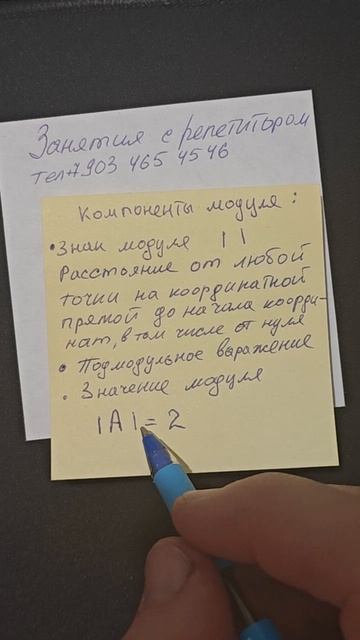 Занятия с репетитором
тел+7903 465 4546
Компоненты модуля:
•Знак модуля | |
Расстояние от любой
точки на координатной
прямой до начала коорди-
нат, в том числе от нуля
• Подмодульное выражение
• Значение модуля
|A|=2